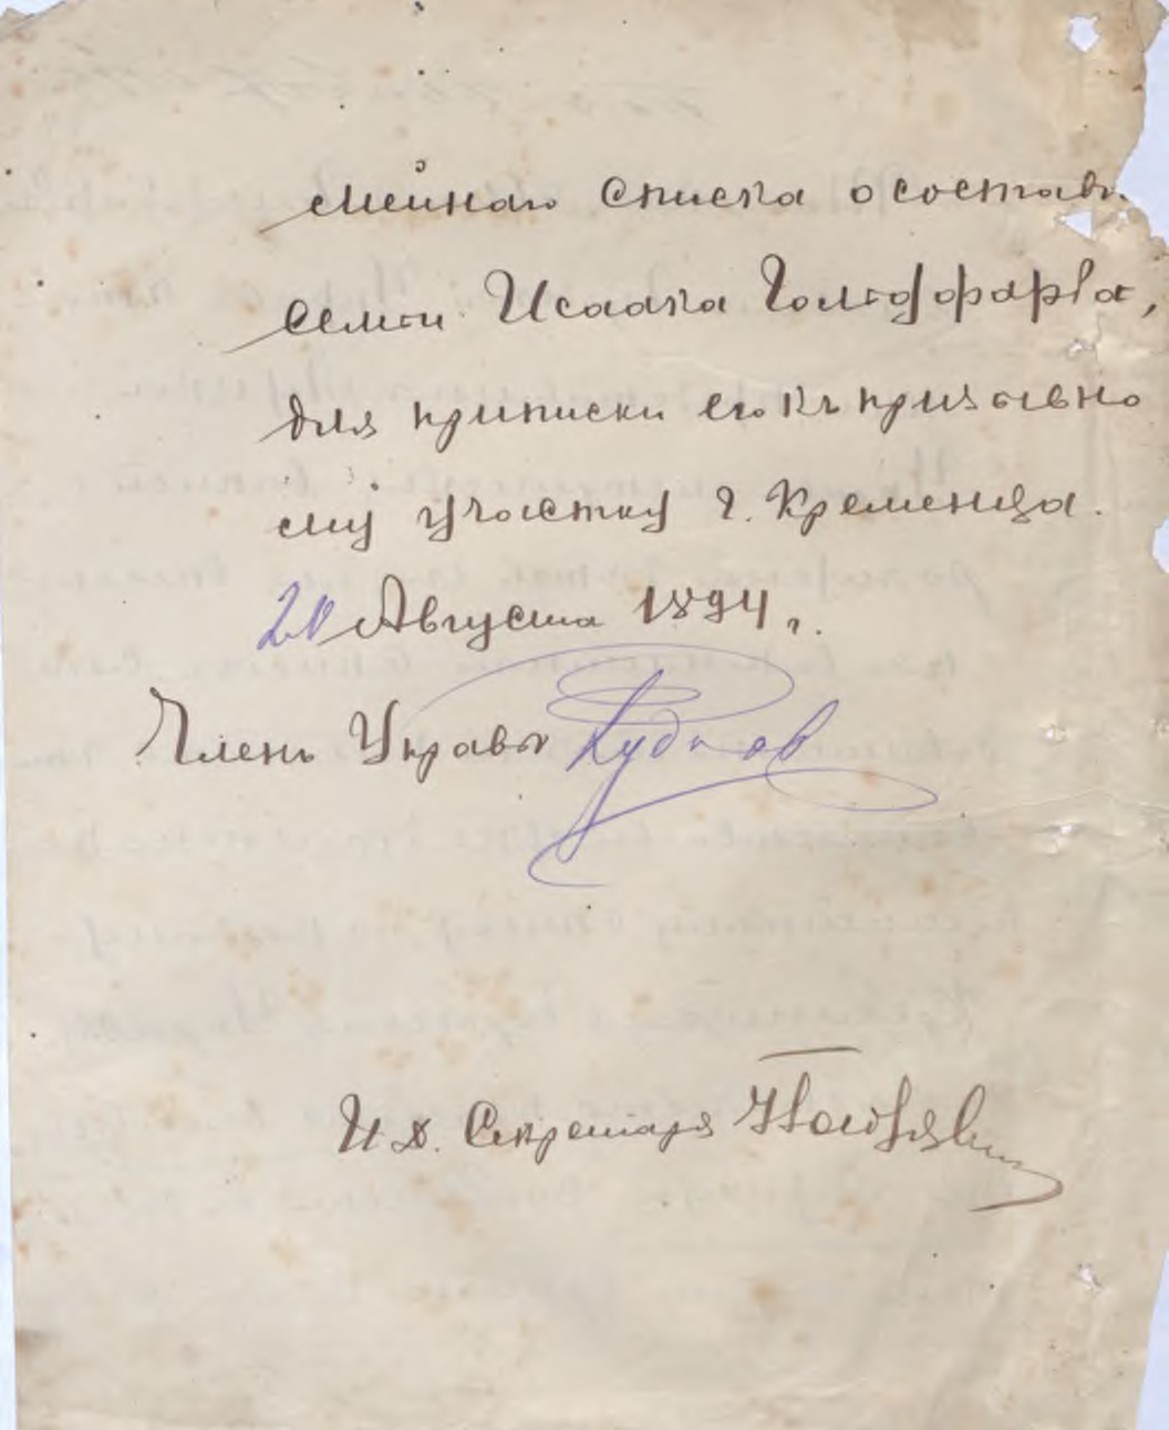 мейнаго списка о составѣ
семьи Исаака Гольдфарба,
для приписки его къ призывно
му участку г. Кременца.
20 Августа 1894 г.
Членъ Управы
И. д. Секретаря